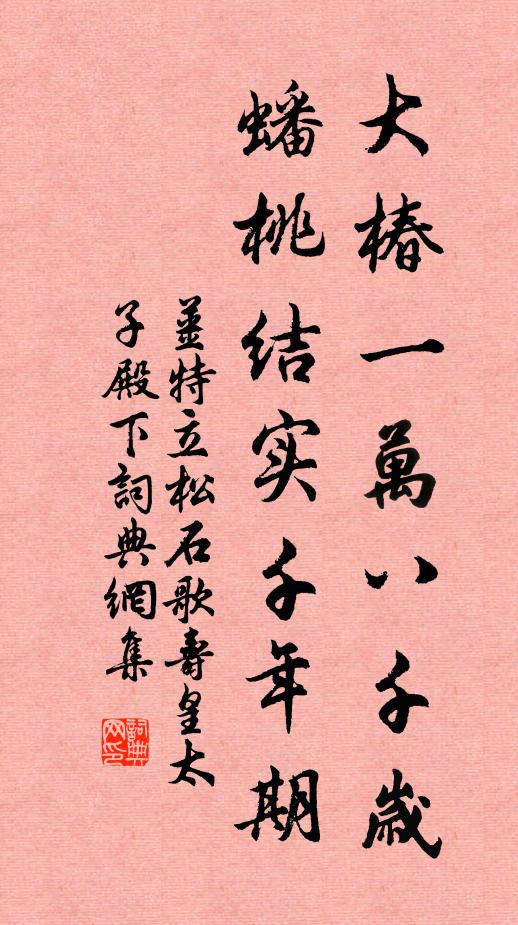 大椿一萬八千歲
蟠桃结实千年期
姜特立松石歌壽皇太
子殿下詞典網集
詞典网印